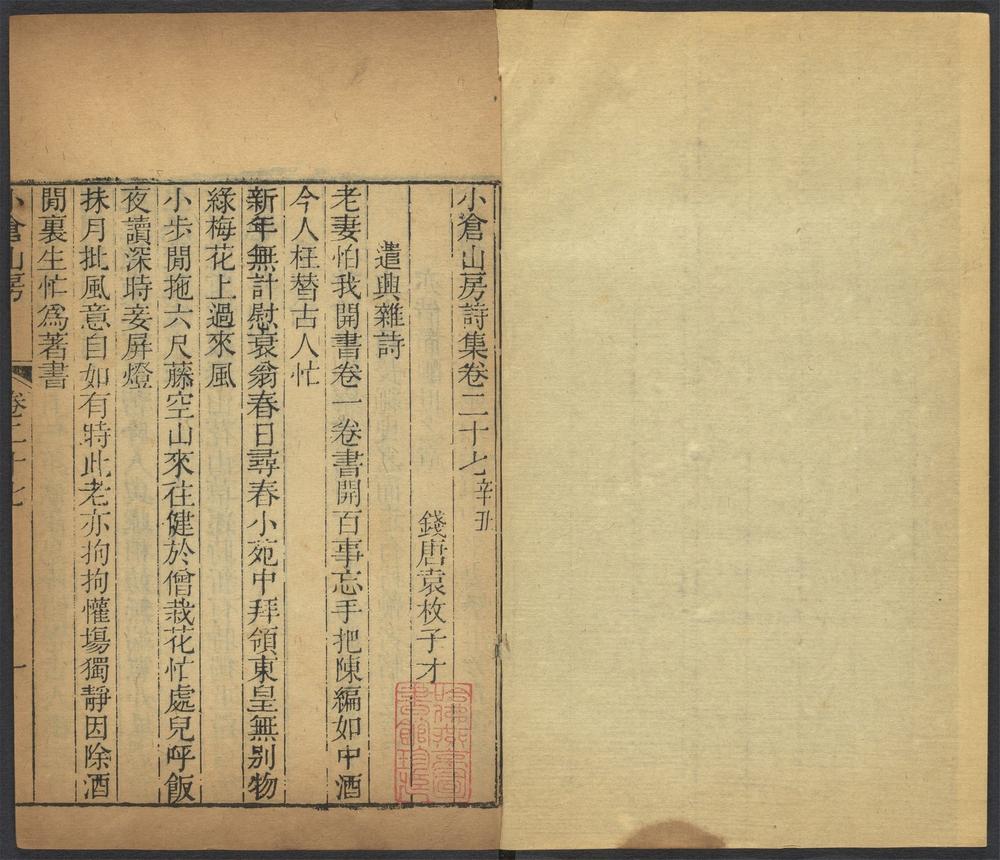 小倉山房詩集卷二十七辛丑
錢唐袁枚子才
遣興雜詩
老妻怕我開書卷一卷書開百事忘手把陳編如中酒
今人枉替古人忙
新年無計慰衰翁春日尋春小苑中拜領東皇無別物
綠梅花上過來風
小步閒拖六尺藤空山來往健於僧栽花忙處兒呼飯
夜讀深時妾屏燈
抹月批風意自如有時此老亦拘拘懽塲獨靜因除酒
閒裏生忙爲著書
小倉山房 卷二十七 一
哈佛燕京圖書館珍藏